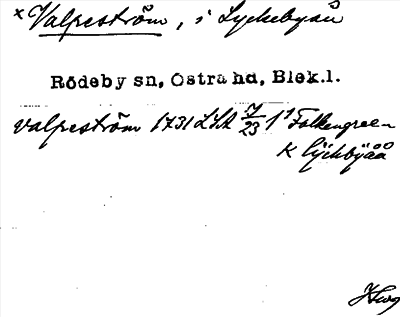 × Valpeström, i Lyckebyån
Rödeby sn, Östra hd, Blek.l.
Valpeström 1731 LSA 7/23 1¹ Falkengreen
K lÿckbÿåå